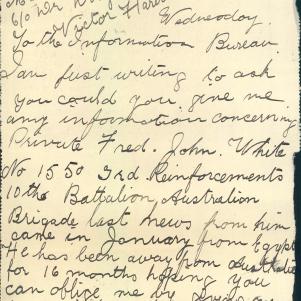 c/o Mr
Victor Har
Wednesday.
To the Information Bureau.
I am just writing to ask
you could you give me
any information concerning
Private Fred. John. White
No 1550 3rd Reinforcements
10th Battalion Australian
Brigade last news from him
came in January from Egypt
He has been away from Australia
for 16 months hoping you
can oblige me by